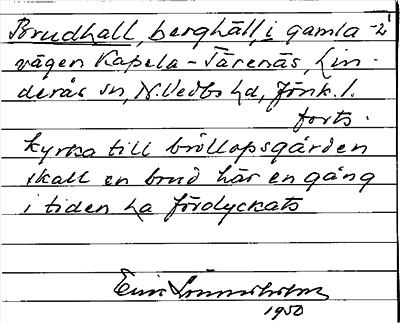 Brudhall, berghäll, i gamla -2
vägen Kapela - Tärenäs, Lin-
derås sn, N. Vedbo hd, Jönk. l.
forts.
kyrka till bröllopsgården
skall en brud här en gång
i tiden ha förolyckats
1950